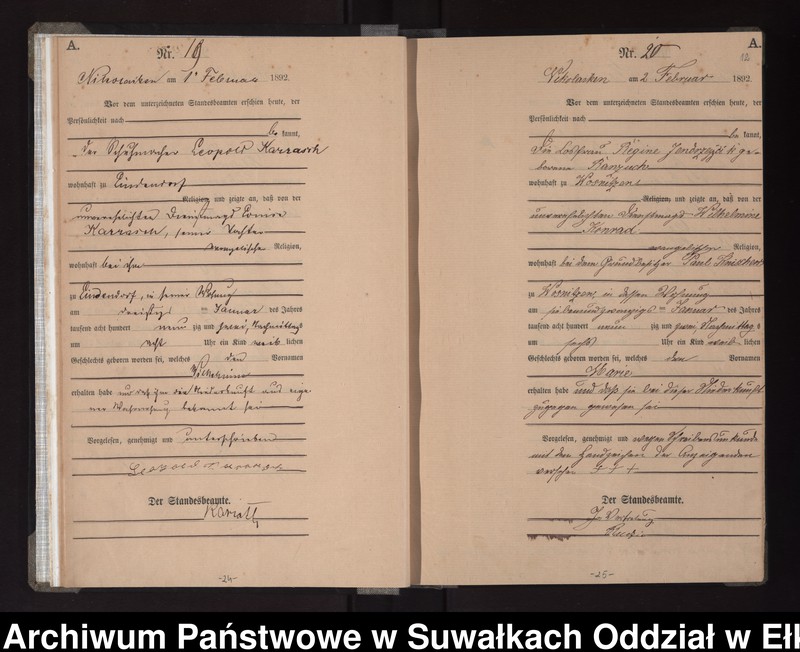 A.
Nr. 19
Nikolaiken am 1 Februar 1892.
Vor dem unterzeichneten Standesbeamten erschien heute, der
Persönlichkeit nach
be kannt,
der Schuhmacher Leopold Karrasch
wohnhaft zu Lindendorf
Religion, und zeigte an, daß von der
unverehelichten Dienstmagd Louise
Karrasch, seiner Tochter
evangelische Religion,
wohnhaft bei ihm
zu Lindendorf, in seiner Wohnung
am dreißigs ten Januar des Jahres
tausend acht hundert neun zig und zwei, Nachmittags
um acht Uhr ein Kind weib lichen
Geschlechts geboren worden sei, welches den Vornamen
Wilhelmine
erhalten habe und daß ihm die Niederkunft aus eige
ner Wahrnehmung bekannt sei
Vorgelesen, genehmigt und unterschrieben
Leopold Karrasch
Der Standesbeamte.
-24-
A.
Nr. 20
12
Nikolaiken am 2 Februar 1892
Vor dem unterzeichneten Standesbeamten erschien heute, der
Persönlichkeit nach
be kannt,
die Losfrau Regine ge-
borene
wohnhaft zu Kosnitzen
Religion, und zeigte an, daß von der
unverehelichten Dienstmagd Wilhelmine
Konrad
evangelischer Religion,
wohnhaft bei dem Grundbesitzer Paul
zu Kosnitzen, in dessen Wohnung
am siebenundzwanzigs ten Januar des Jahres
tausend acht hundert neun zig und zwei, Nachmittag s
um sechs Uhr ein Kind weib lichen
Geschlechts geboren worden sei, welches den Vornamen
Marie
erhalten habe und daß sie bei dieser Niederkunft
zugegen gewesen sei
Vorgelesen, genehmigt und wegen Schreibensunkunde
mit den Handzeichen der Anzeigenden
versehen + + +
Der Standesbeamte.
In Vertretung
-25-
Archiwum Państwowe w Suwałkach Oddział w Ełk